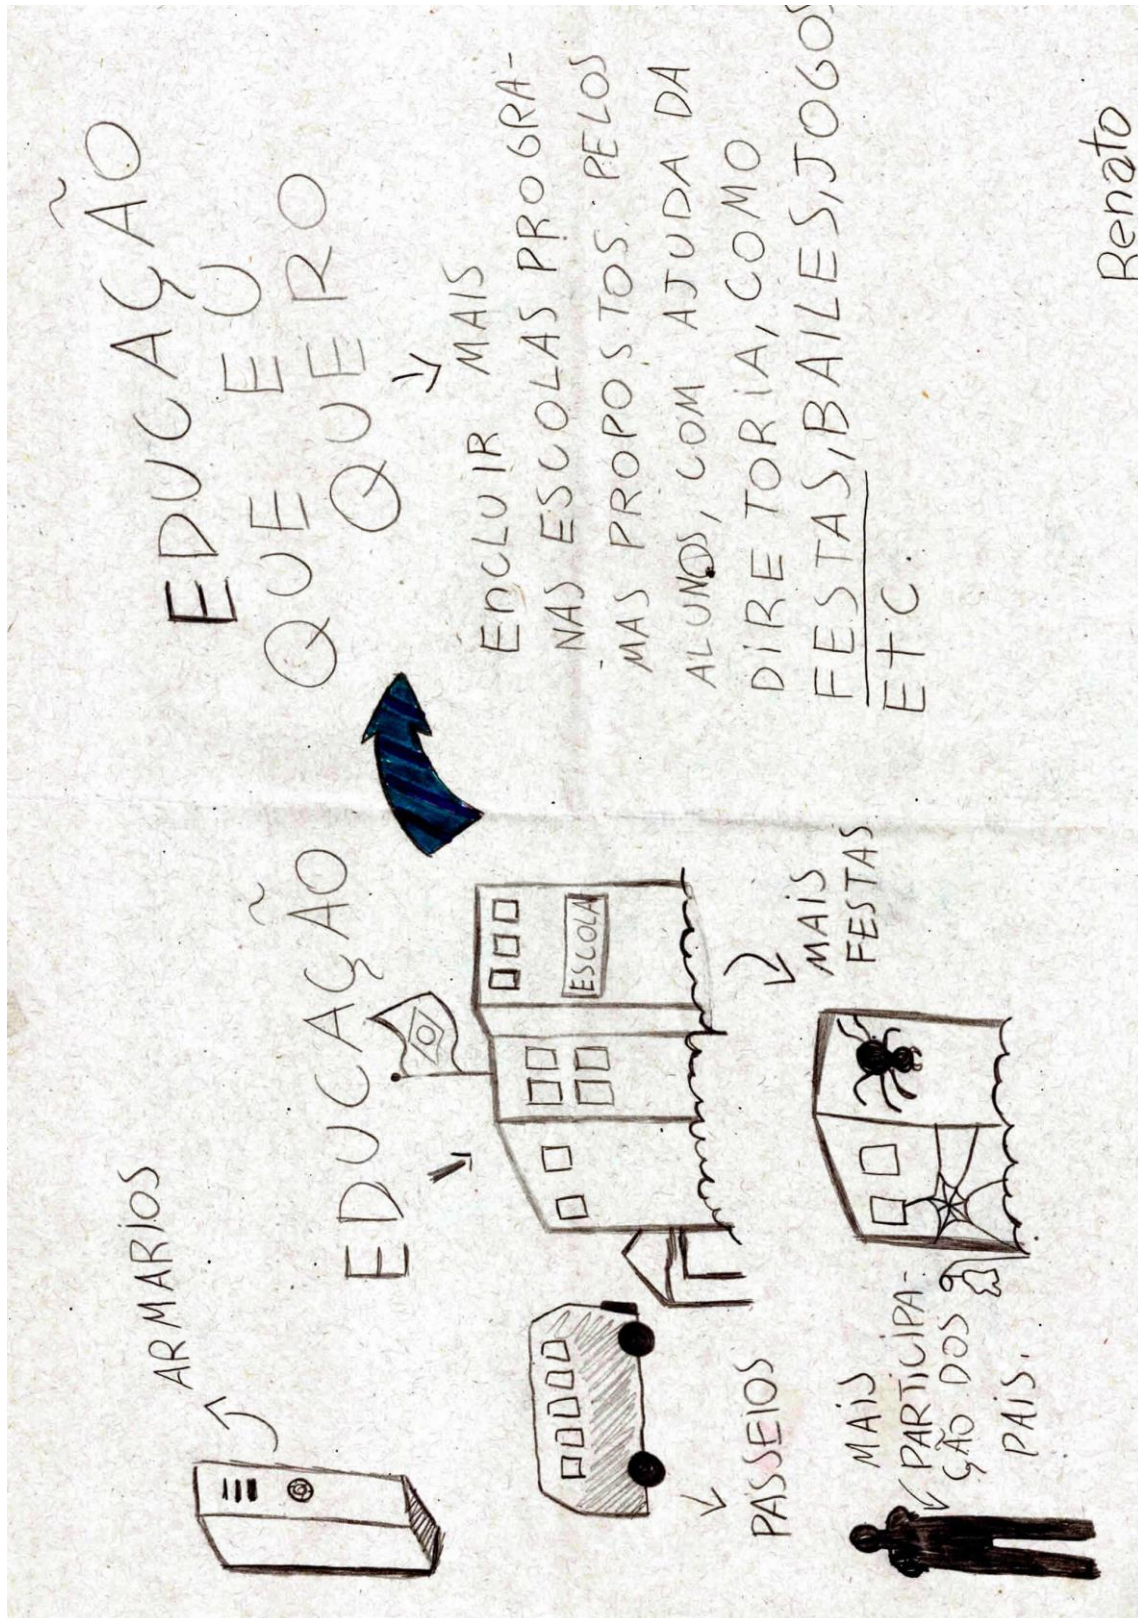 ARMARIOS
EDUCAÇÃO
ESCOLA
PASSEIOS
MAIS
FESTAS
MAIS
PARTICIPA-
ÇÃO DOS
PAIS.
EDUCAÇÃO
QUE EU
QUERO
EnCLUIR MAIS
NAS ESCOLAS PROGRA-
MAS PROPOSTOS PELOS
ALUNOS, COM AJUDA DA
DIRETORIA, COMO
FESTAS, BAILES, JOGOS
ETC.
Renato